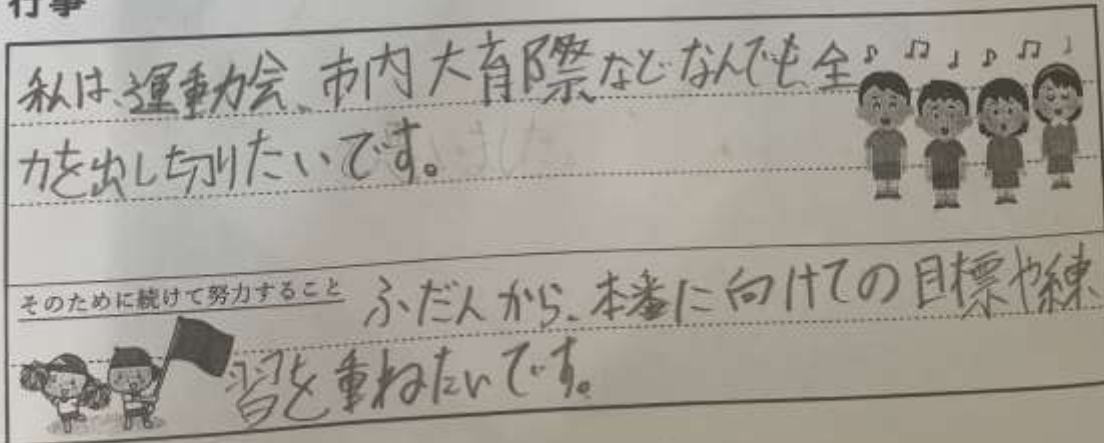 行事
私は、運動会、市内大育際などなんでも全
力を出し切りたいです。
そのために続けて努力すること
ふだんから、本番に向けての目標や練
習を重ねたいです。